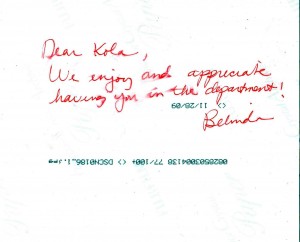 Dear Kola,
We enjoy and appreciate
having you in the department!
<> 11/28/09
Belinda
0828503004138 77/100+ <> DSCN0186_1.jpg